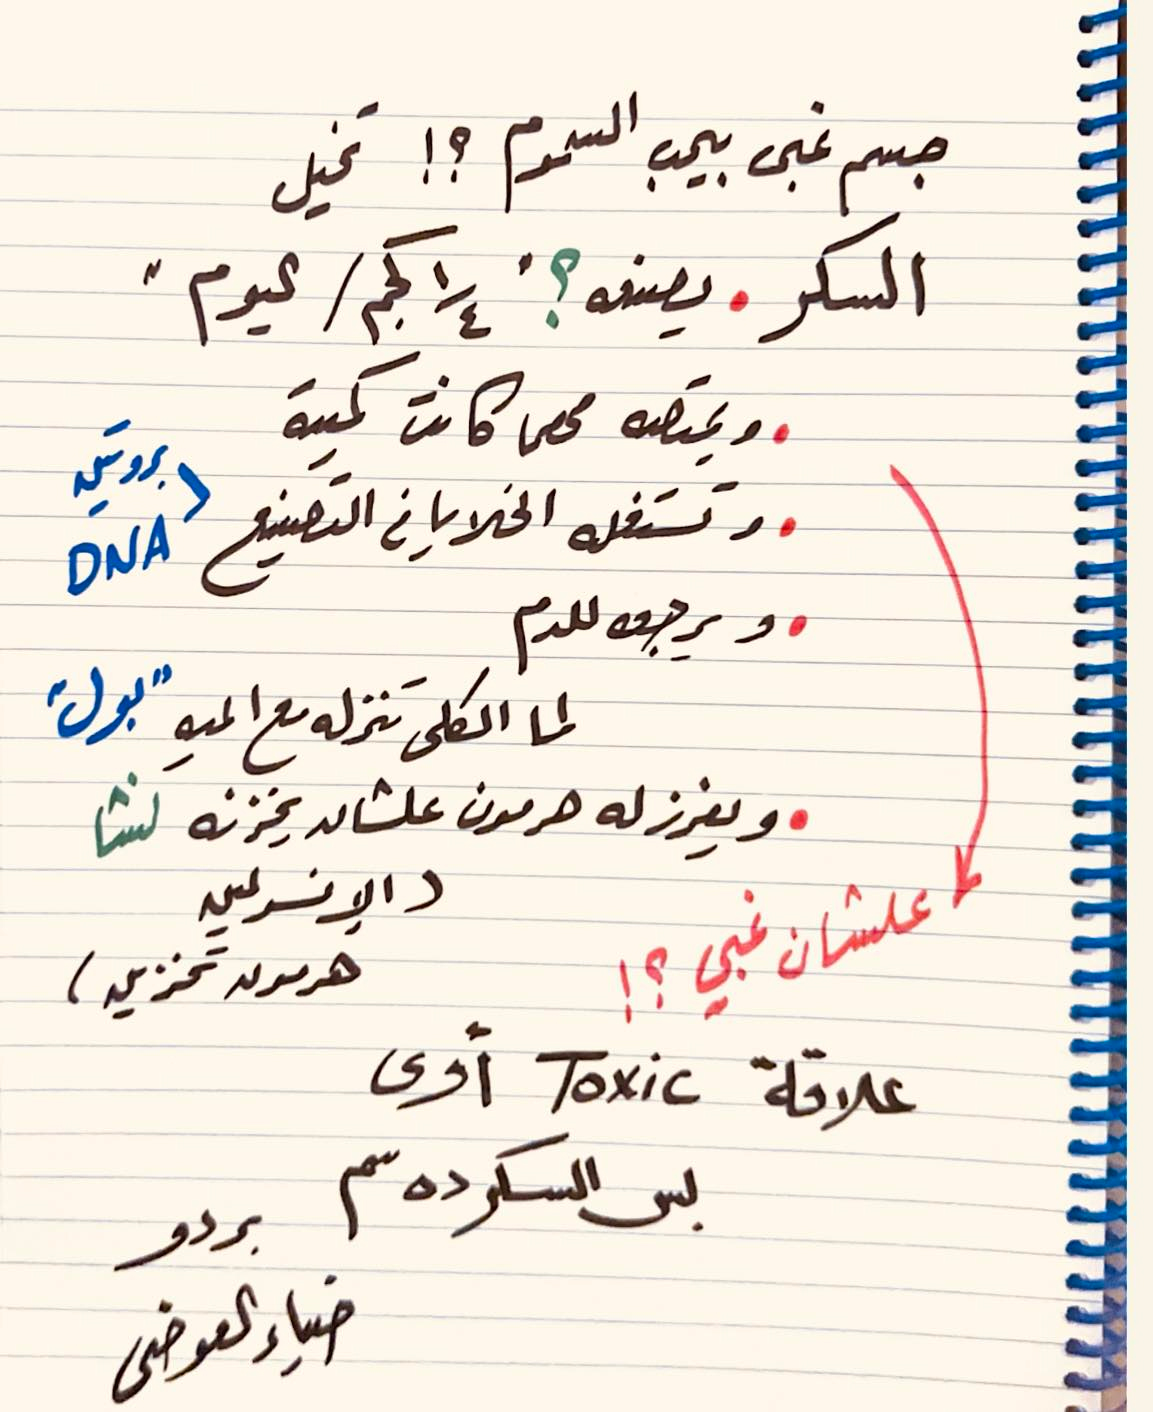 جسم غبى بيحب السموم ؟! تخيل
السكر • يصنعه ؟ "١/٤ كجم / اليوم"
• ويمتصه مهما كانت كمية
• و تستغله الخلايا في التصنيع ( بروتين
DNA
• و يرجعه للدم
لما الكلى تنزله مع الميه "بول"
• و يفرز له هرمون علشان يخزنه نشا
( الإنسولين
هرمون تخزين )
علشان غبي ؟!
علاقة Toxic أوى
بس السكر ده سم
بردو
ضياء العوضى